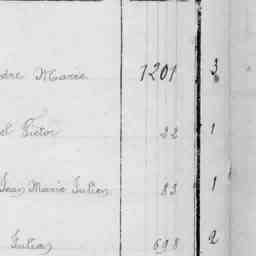 dre Marie 1201 3
el Victor 22 1
Jean Marie Julien 83 1
Julien 698 2